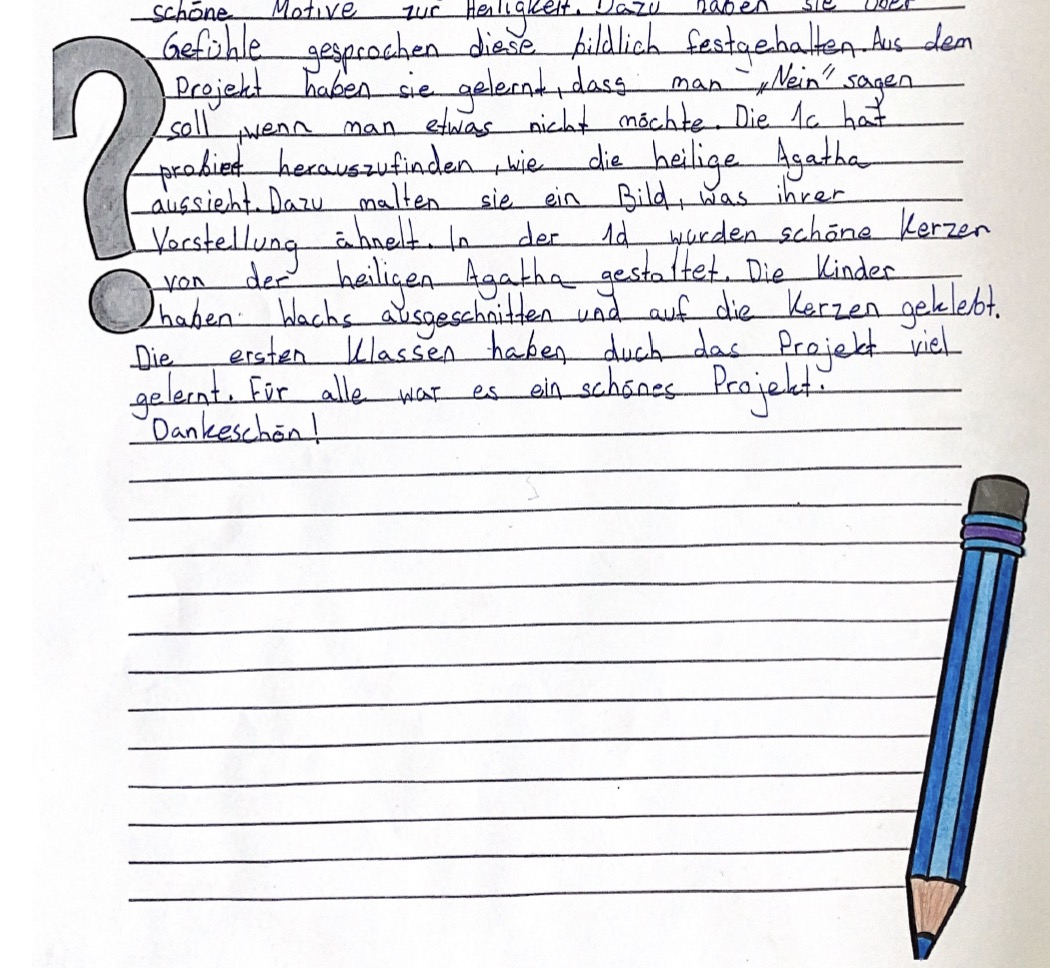 schöne Motive zur Heiligkeit. Dazu haben sie über
Gefühle gesprochen diese bildlich festgehalten. Aus dem
Projekt haben sie gelernt, dass man „Nein" sagen
soll, wenn man etwas nicht möchte. Die 1c hat
probiert herauszufinden, wie die heilige Agatha
aussieht. Dazu malten sie ein Bild, was ihrer
Vorstellung ähnelt. In der 1d wurden schöne Kerzen
von der heiligen Agatha gestaltet. Die Kinder
haben Wachs ausgeschnitten und auf die Kerzen geklebt.
Die ersten Klassen haben duch das Projekt viel
gelernt. Für alle war es ein schönes Projekt.
Dankeschön!